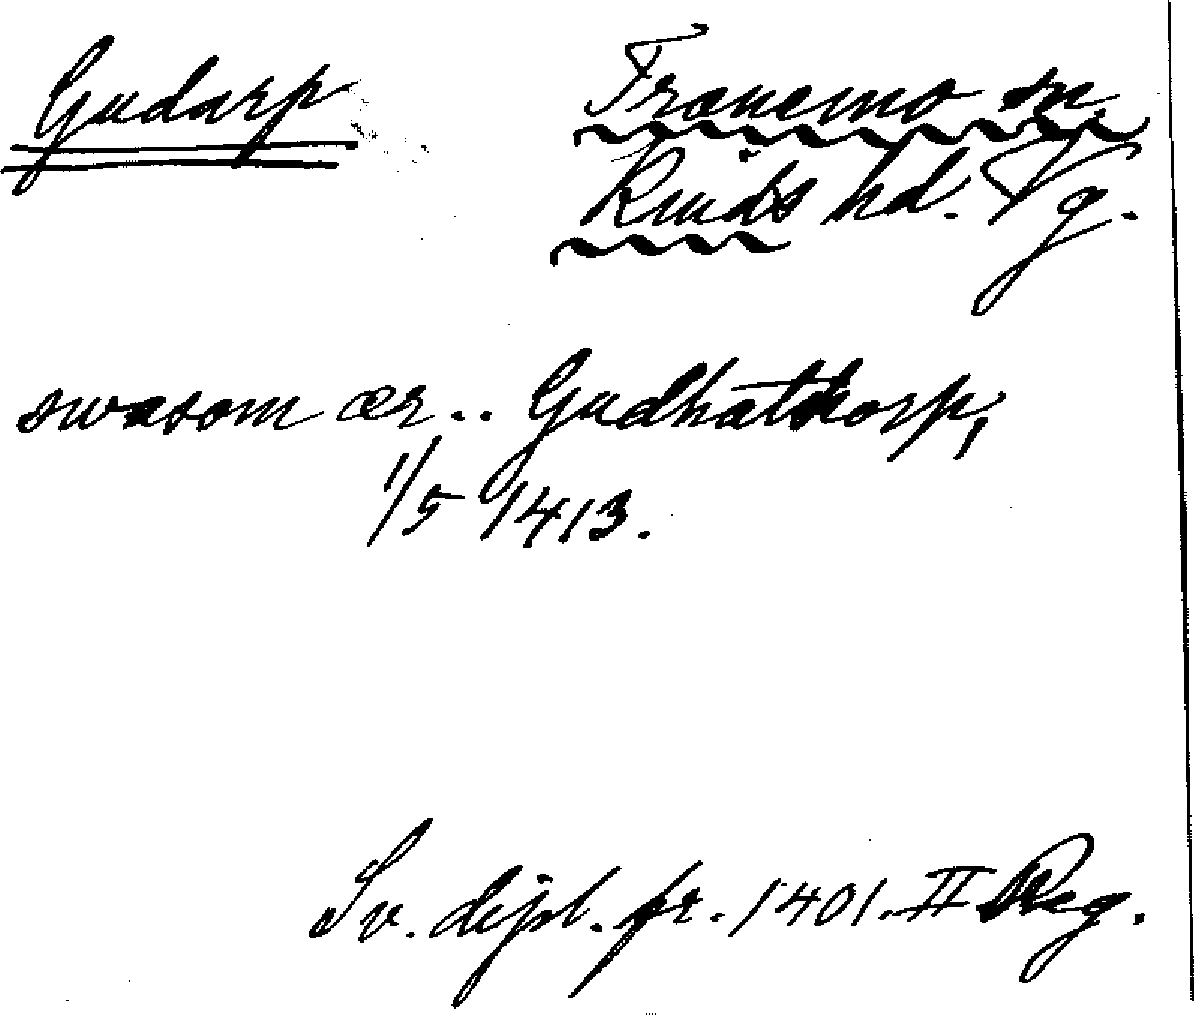 Gudarp
Tranemo sn,
Kinds hd. Vg.
swasom ær.. Gudhatorp,
1/5 1413.
Sv. dipl. fr. 1401. II Reg.